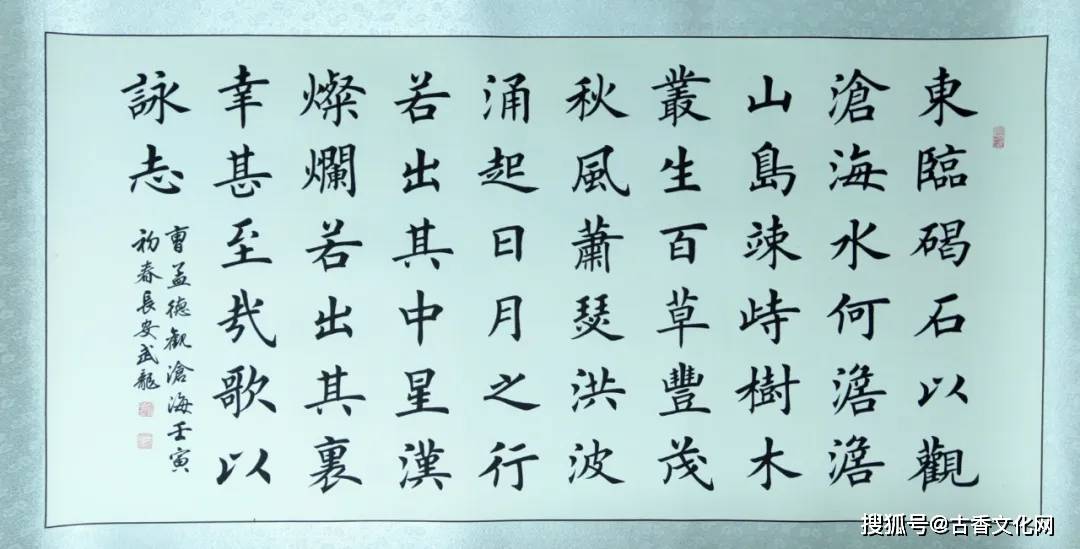 東臨碣石以觀
滄海水何澹澹
山島竦峙樹木
叢生百草豐茂
秋風蕭瑟洪波
涌起日月之行
若出其中星漢
燦爛若出其裏
幸甚至哉歌以
詠志
曹孟德观滄海壬寅
初春長安武龍
搜狐号@古香文化网